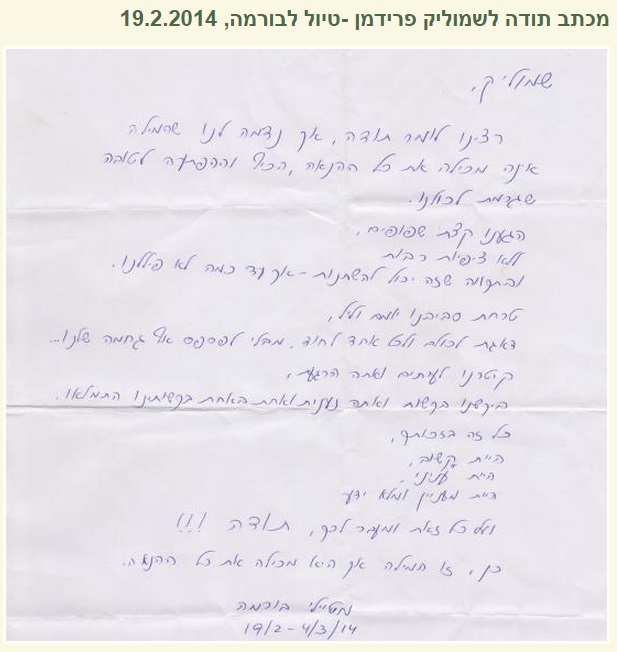 מכתב תודה לשמוליק פרידמן -טיול לבורמה, 19.2.2014
שמוליק,
רצינו לומר תודה, אך נדמה לנו שהמילה
אינה מכילה את כל ההנאה, הכיף וההפתעה לטובה
שגרמת לכולנו.
הגענו קצת שפופים,
ללא ציפיות רבות
ובתקווה שזה יכול להשתנות - אך עד כמה לא פיללנו.
טרחת סביבנו יומם וליל,
דאגת לכולם ולכל אחד לחוד, מבלי לפספס אף גחמה שלנו...
קיטרנו לעיתים ואתה הרגעת,
ביקשנו בקשות ואתה נענית ואחת באחת בקשותינו התמלאו.
כל זה בזכותך,
היית קשוב,
היית ענייני,
היית מעניין ומלא ידע
ועל כל זאת ומעבר לכך, תודה !!!
כן, זו המילה אך היא מכילה את כל ההנאה.
מטיילי בורמה
19/2 - 4/3/14